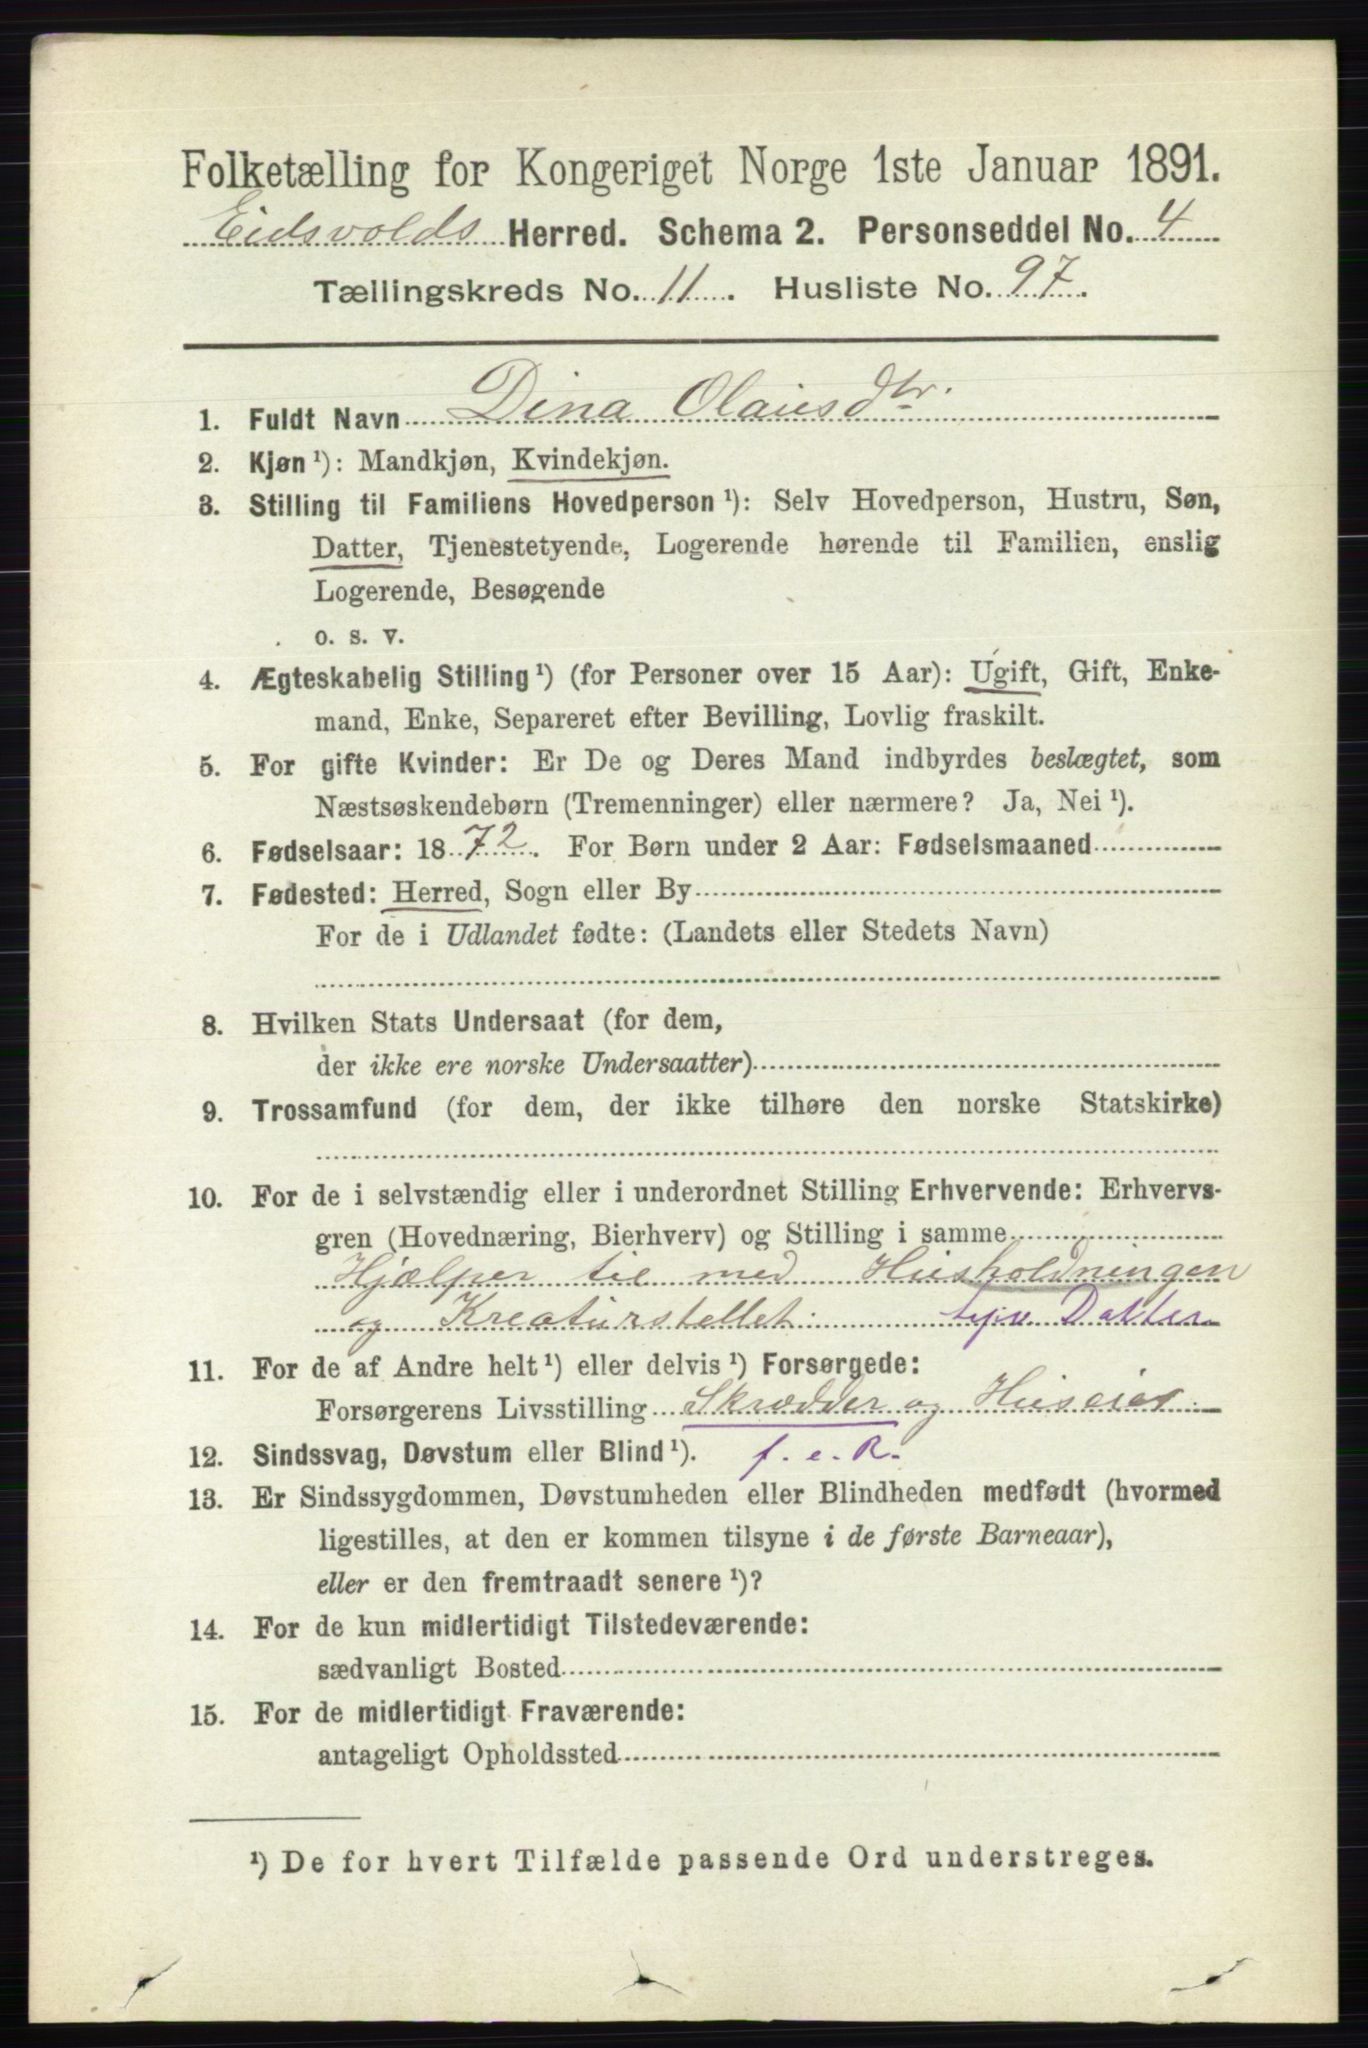 Folketælling for Kongeriget Norge 1ste Januar 1891.
Eidsvolds Herred. Schema 2. Personseddel No. 4
Tællingskreds No. 11. Husliste No. 97.
1. Fuldt Navn Dina Olausdtr.
2. Kjøn ¹): Mandkjøn, Kvindekjøn.
3. Stilling til Familiens Hovedperson ¹): Selv Hovedperson, Hustru, Søn,
Datter, Tjenestetyende, Logerende hørende til Familien, enslig
Logerende, Besøgende
o. s. v.
4. Ægteskabelig Stilling ¹) (for Personer over 15 Aar): Ugift, Gift, Enke-
mand, Enke, Separeret efter Bevilling, Lovlig fraskilt.
5. For gifte Kvinder: Er De og Deres Mand indbyrdes beslægtet, som
Næstsøskendebørn (Tremenninger) eller nærmere? Ja, Nei ¹).
6. Fødselsaar: 1872. For Børn under 2 Aar: Fødselsmaaned
7. Fødested: Herred, Sogn eller By
For de i Udlandet fødte: (Landets eller Stedets Navn)
8. Hvilken Stats Undersaat (for dem,
der ikke ere norske Undersaatter)
9. Trossamfund (for dem, der ikke tilhøre den norske Statskirke)
10. For de i selvstændig eller i underordnet Stilling Erhvervende: Erhvervs-
gren (Hovednæring, Bierhverv) og Stilling i samme
Hjælper til med Husholdningen
og Kreaturstellet. Datter
11. For de af Andre helt ¹) eller delvis ¹) Forsørgede:
Forsørgerens Livsstilling Skrædder og Huseier
12. Sindssvag, Døvstum eller Blind ¹). f. e. R.
13. Er Sindssygdommen, Døvstumheden eller Blindheden medfødt (hvormed
ligestilles, at den er kommen tilsyne i de første Barneaar),
eller er den fremtraadt senere ¹)?
14. For de kun midlertidigt Tilstedeværende:
sædvanligt Bosted
15. For de midlertidigt Fraværende:
antageligt Opholdssted
¹) De for hvert Tilfælde passende Ord understreges.